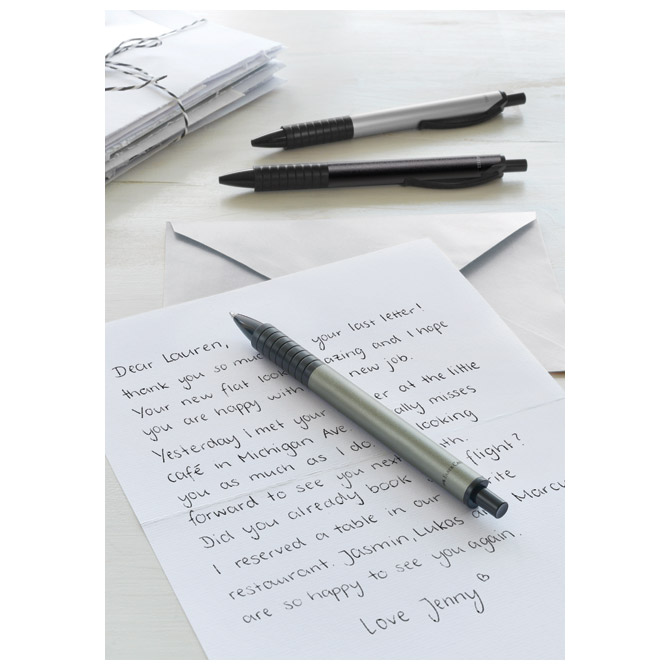 Dear Lauren,
thank you so muc your last letter!
Your new flat look azing and I hope
you are happy with new job.
Yesterday I met your er at the little
café in Michigan Ave ally misses
you as much as I do. looking
forward to see you next th.
Did you already book flight?
I reserved a table in our rite
restaurant. Jasmin, Lukas a Marcu
are so happy to see you again.
Love Jenny